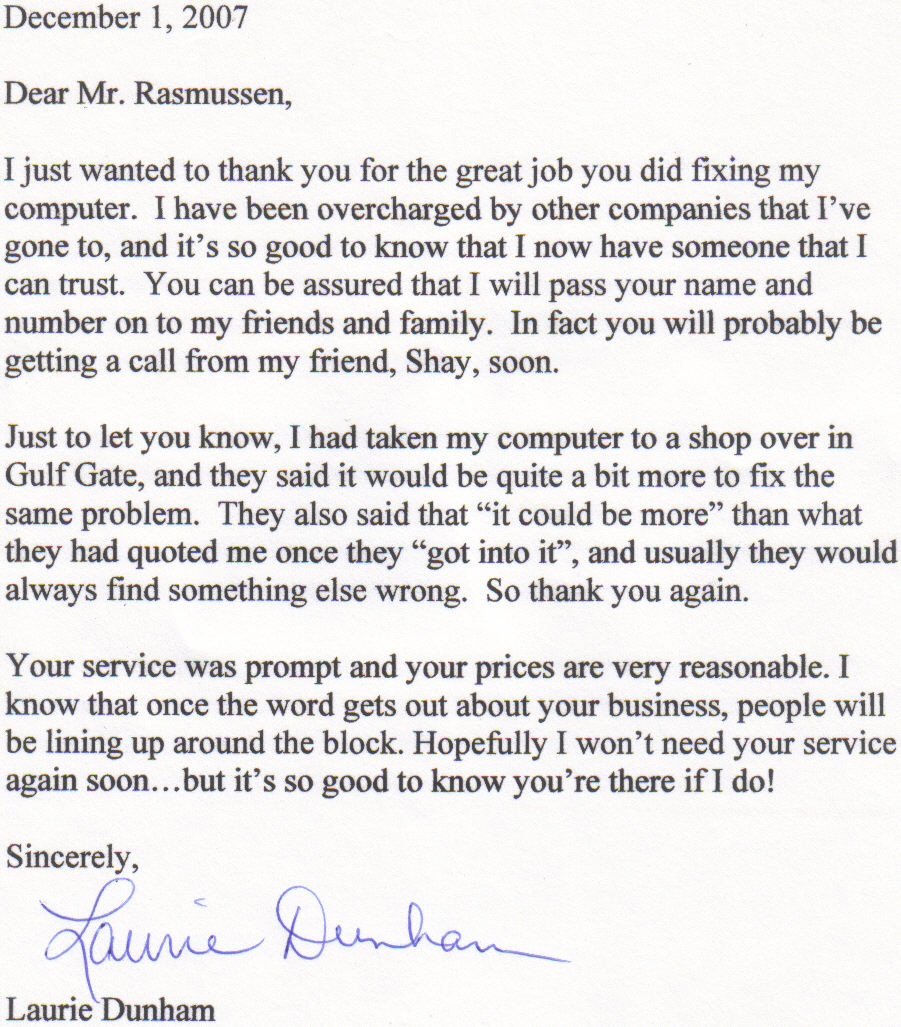 December 1, 2007
Dear Mr. Rasmussen,
I just wanted to thank you for the great job you did fixing my
computer.  I have been overcharged by other companies that I’ve
gone to, and it’s so good to know that I now have someone that I
can trust.  You can be assured that I will pass your name and
number on to my friends and family.  In fact you will probably be
getting a call from my friend, Shay, soon.
Just to let you know, I had taken my computer to a shop over in
Gulf Gate, and they said it would be quite a bit more to fix the
same problem.  They also said that “it could be more” than what
they had quoted me once they “got into it”, and usually they would
always find something else wrong.  So thank you again.
Your service was prompt and your prices are very reasonable. I
know that once the word gets out about your business, people will
be lining up around the block. Hopefully I won’t need your service
again soon…but it’s so good to know you’re there if I do!
Sincerely,
Laurie Dunham
Laurie Dunham